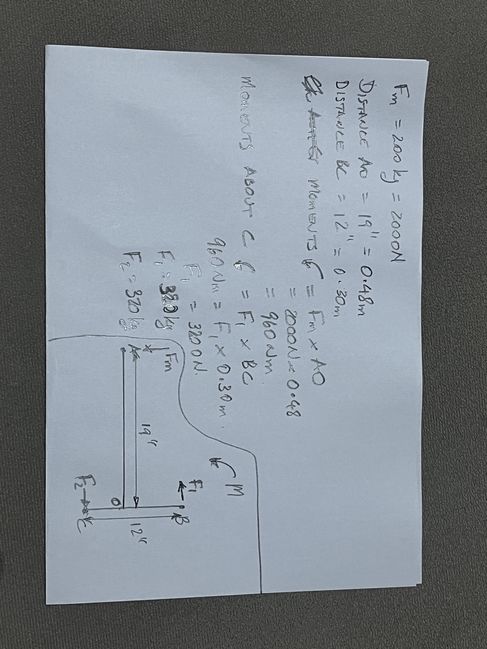 Fm = 200kg = 2000N
DISTANCE AO = 19" = 0.48m
DISTANCE BC = 12" = 0.30m
MOMENTS = Fm × AO
= 2000N × 0.48
= 960 Nm.
MOMENTS ABOUT C = F1 × BC
960Nm = F1 × 0.30m.
F1 = 3200N.
F1 = 320kg
F2 = 320kg
Fm
A
19"
O
M
F1
B
12"
F2
C